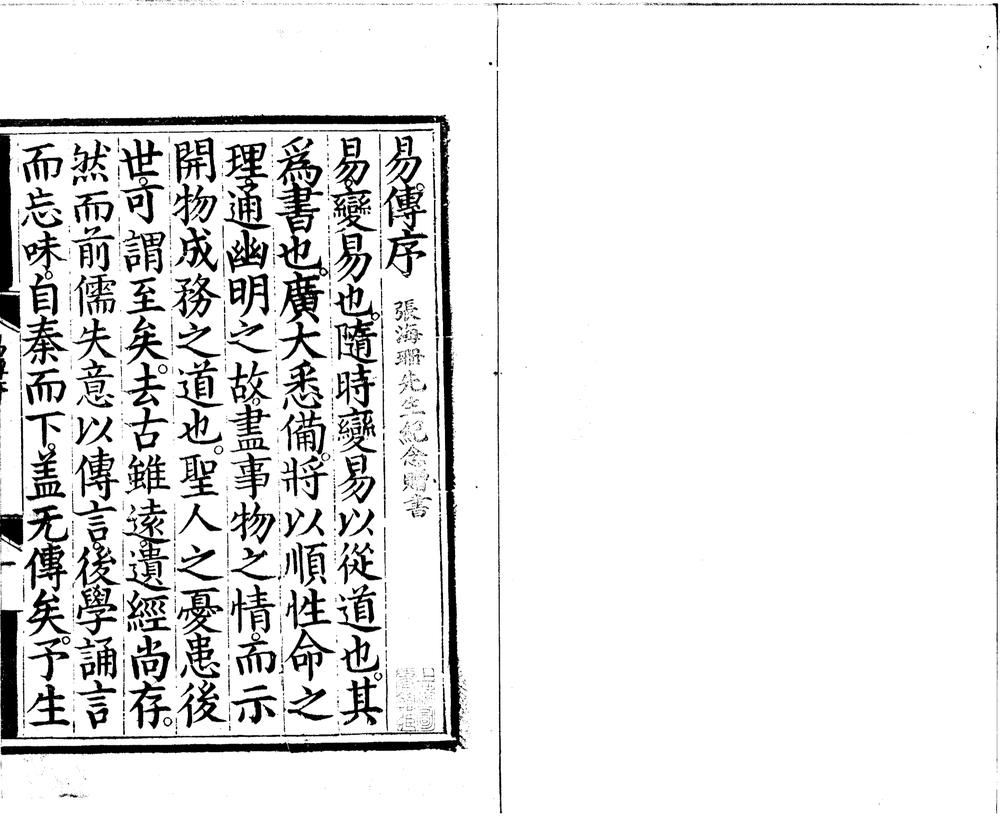 易傳序
張海珊先生紀念贈書
易。變易也。隨時變易以從道也。其
爲書也。廣大悉備。將以順性命之
理。通幽明之故。盡事物之情。而示
開物成務之道也。聖人之憂患後
世。可謂至矣。去古雖遠。遺經尚存。
然而前儒失意以傳言。後學誦言
而忘味。自秦而下。盖无傳矣。予生